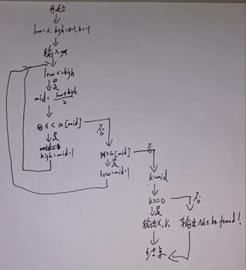 开始
low=0, high=N-1, k=-1
输入x
low<=high
是
mid=(low+high)/2
x<a[mid]
否
是
high=mid-1
x>a[mid]
否
是
low=mid-1
k=mid
k>=0
否
是
输出x,k
输出Not be found!
结束